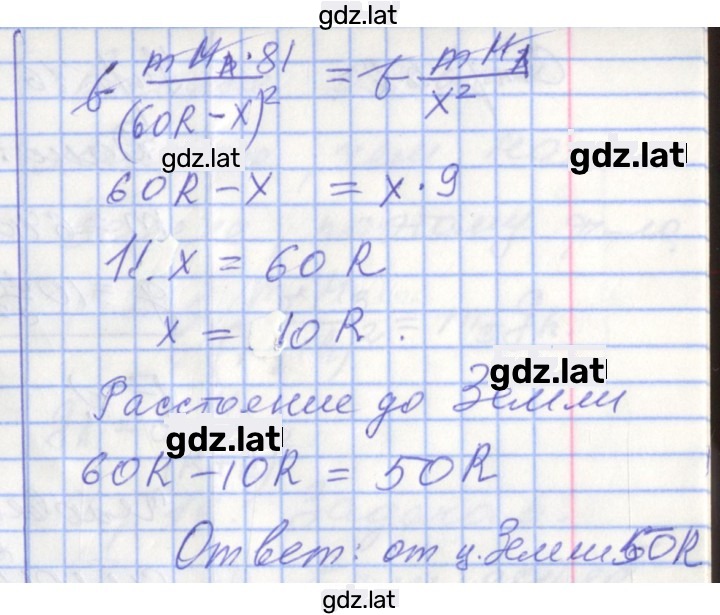 gdz.lat
G mM_л·81/(60R-x)² = G mM_л/x²
gdz.lat
gdz.lat
60R-x = x·9
11.x = 60R
x = 10R.
gdz.lat
Расстоение до Земли
gdz.lat
60R-10R = 50R
Ответ: от ц.Земли 50R
gdz.lat